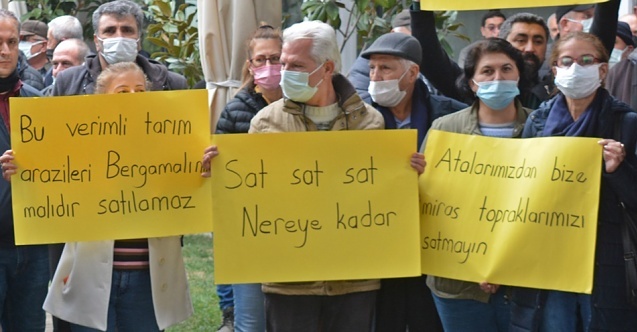 Bu verimli tarım
arazileri Bergamalın
malıdır satılamaz
Sat sat sat
Nereye kadar
Atalarımızdan bize
miras topraklarımızı
satmayın